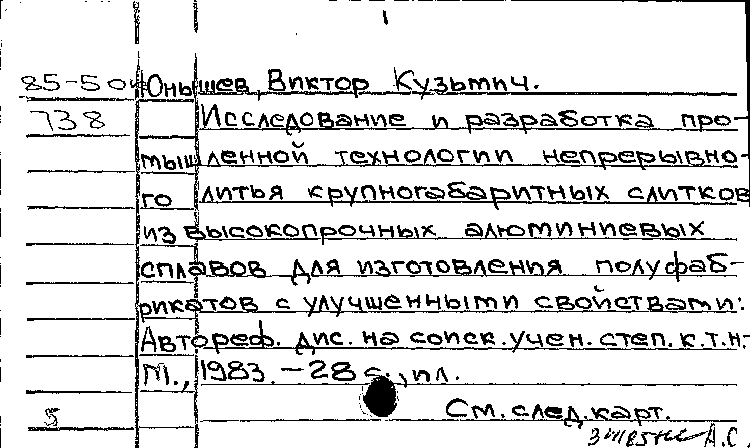 1
85-504 Юнышев, Виктор Кузьмич.
738 Исследование и разработка про-
мышленной технологии непрерывно-
го литья крупногабаритных слитков
из высокопрочных алюминиевых
сплавов для изготовления полуфаб-
рикатов с улучшенными свойствами:
Автореф. дис. на соиск. учен. степ. к.т.н.-
М., 1983. - 28 с., ил.
5 См. след. карт.
А.С